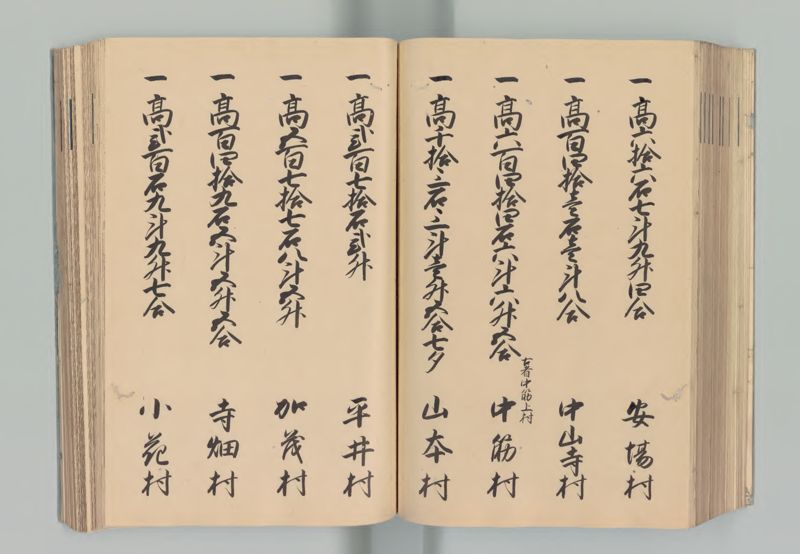 一 高六拾六石七斗九升四合 安場村
一 高百四拾壱石壱斗八合 中山寺村
一 高六百四拾四石六斗六升五合 中筋村
古者中筋上村
一 高千拾三石三斗壱升五合七夕 山本村
一 高弐百七拾石弐升 平井村
一 高五百七拾七石八斗五升 加茂村
一 高百四拾九石五斗五升五合 寺畑村
一 高弐百石九斗九升七合 小花村